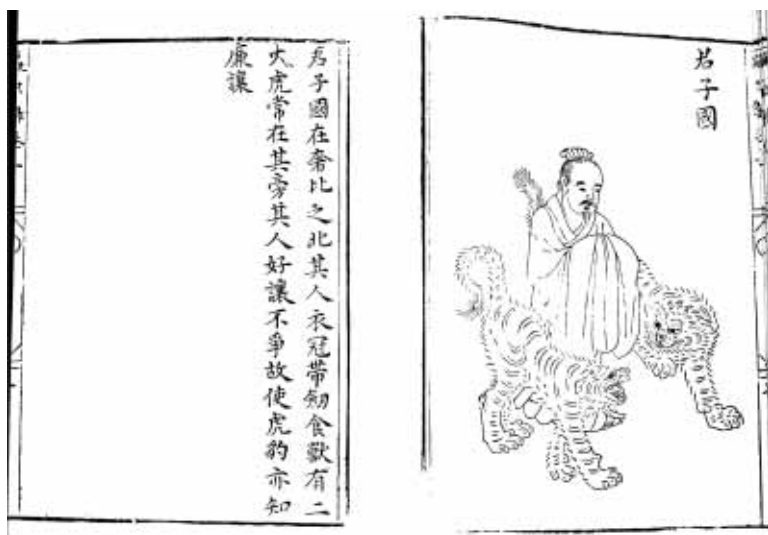 君子國
君子國在奢比之北其人衣冠帶劒食獸有二
大虎常在其旁其人好讓不爭故使虎豹亦知
廉讓